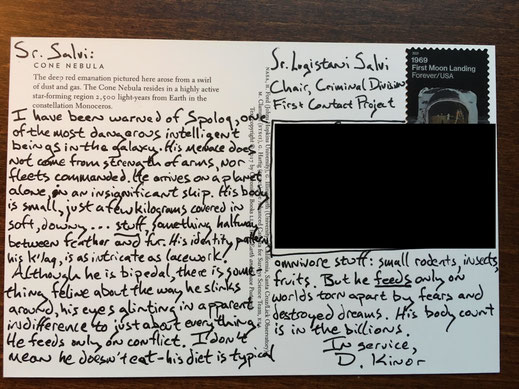 Sr. Salvi:
CONE NEBULA
The deep red emanation pictured here arose from a swirl
of dust and gas. The Cone Nebula resides in a highly active
star-forming region 2,500 light-years from Earth in the
constellation Monoceros.
I have been warned of Spolog, one
of the most dangerous intelligent
beings in the galaxy. His menace does
not come from strength of arms, nor
fleets commanded. He arrives on a planet
alone, in an insignificant ship. His body
is small, just a few kilograms covered in
soft, downy ... stuff something halfway
between feather and fur. His identity pattern,
his k!ng, is as intricate as lacework.
Although he is bipedal, there is some
thing feline about the way he slinks
around, his eyes glinting in apparent
indifference to just about everything.
He feeds only on conflict. I don't
mean he doesn't eat - his diet is typical
Sr. Logistani Salvi
Chair, Criminal Division
First Contact Project
1969
First Moon Landing
Forever/USA
omnivore stuff: small rodents, insects,
fruits. But he feeds only on
worlds torn apart by fears and
destroyed dreams. His body count
is in the billions.
In service,
D. Kinor